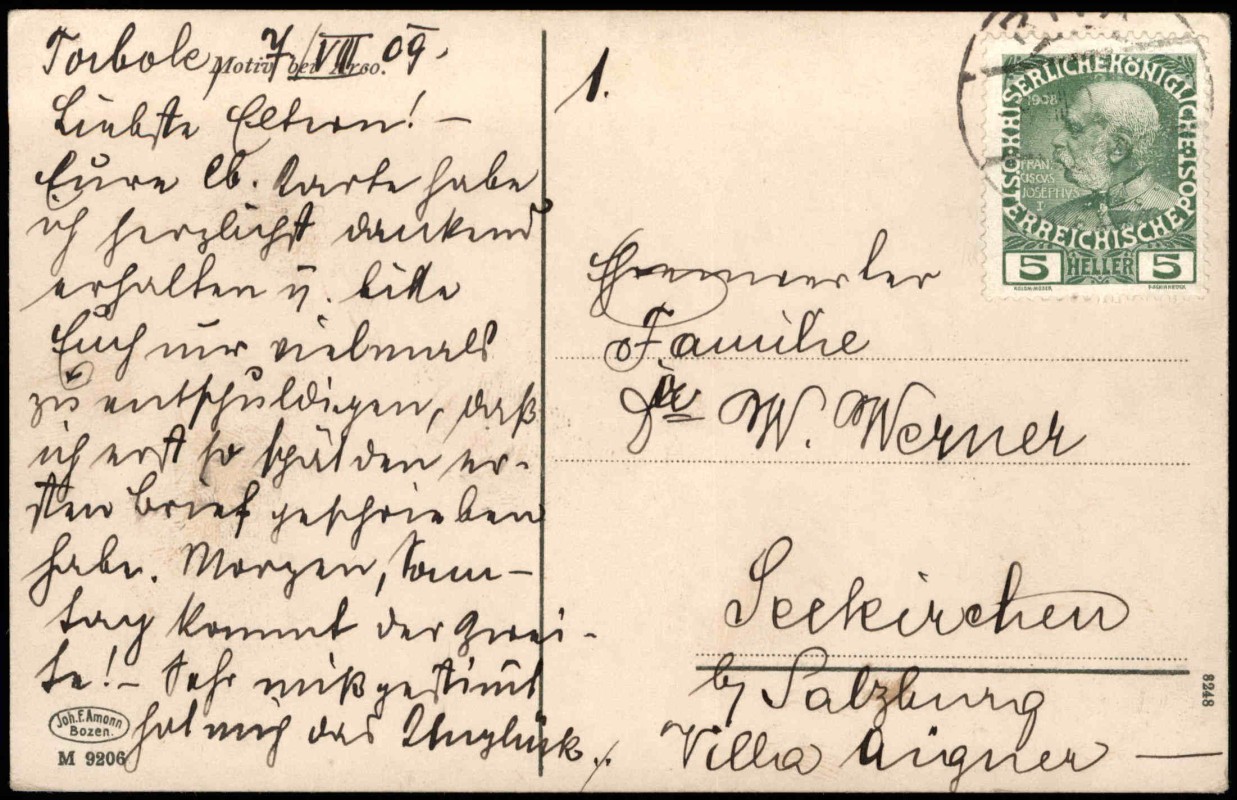 Torbole, 7/VIII 09.
Motiv bei Arco.
Liebste Eltern! –
Eure lb. Karte habe
ich herzlichst dankend
erhalten u. bitte
Euch nur vielmals
zu entschuldigen, daß
ich erst so spät den er-
sten Brief geschrieben
habe. Morgen, Sonn-
tag kommt der zwei-
te! – Sehr mißgestimt
hat mich das Unglück
Joh. F. Amonn
Bozen.
M 9206
1.
KAISERLICHE KÖNIGLICHE
ÖSTERREICHISCHE POST
1908
FRAN-
CISCVS
JOSEPHVS
I
5 HELLER 5
Ehrenwerter
Familie
W. Werner
Seekirchen
by Salzburg
Villa Aigner –
8248